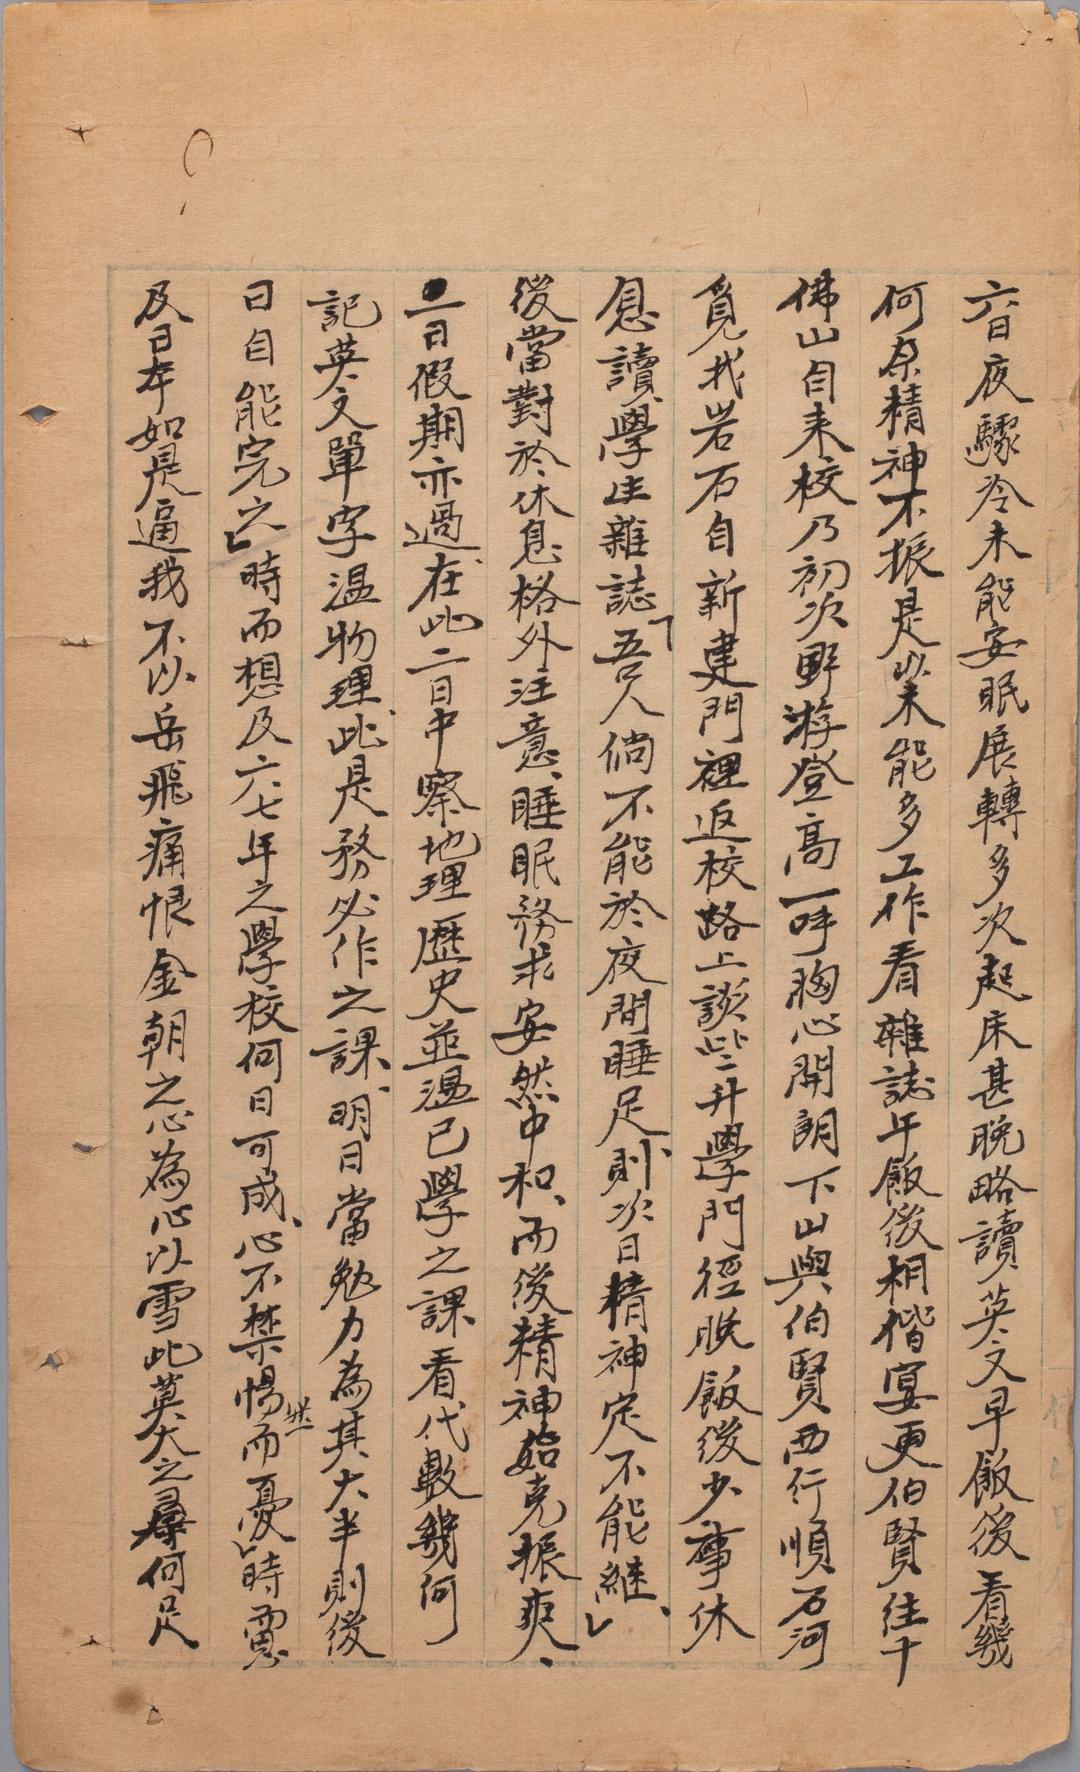 六日夜驟冷未能安眠展轉多次起床甚晚略讀英文早飯後看幾
何奈精神不振是以未能多工作看雜誌午飯後相偕宴更伯賢往千
佛山自来校乃初次野游登高一呼胸心開朗下山與伯賢西行順石河
覓我岩石自新建門裡返校路上談些升學門徑晚飯後少事休
息讀學生雜誌「吾人倘不能於夜間睡足、則次日精神定不能継、」
後當對於休息格外注意、睡眠務求安然中和、而後精神始克振爽、
二日假期亦過、在此二日中察地理歷史並溫已學之課看代數幾何
記英文單字溫物理、此是務必作之課、明日當勉力為其大半則後
日自能完之」時而想及六、七年之學校何日可成、心不禁惕然而憂」時慮
及日本如是逼我不以岳飛痛恨金朝之心為心以雪此莫大之辱何足